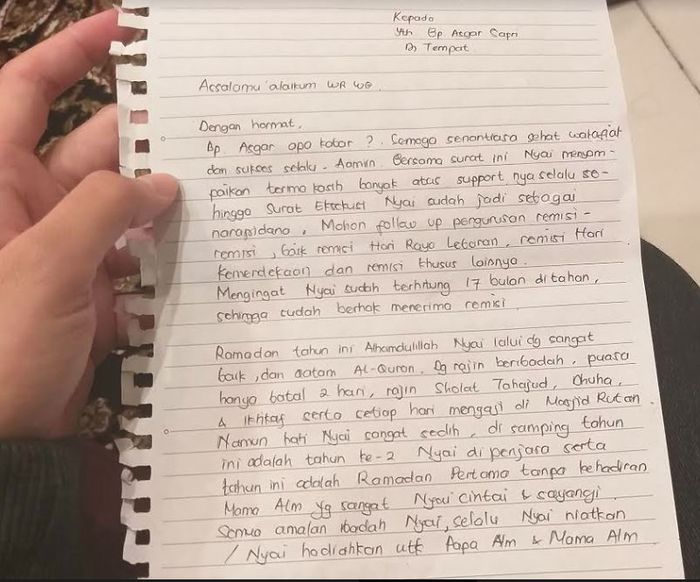 Kepada
Yth Bp Asgar Sapri
Di Tempat
Assalamu'alaikum WR WB.
Dengan hormat,
Bp Asgar apa kabar ? Semoga senantiasa sehat walafiat
dan sukses selalu. Aamiin. Bersama surat ini Nyai menyam-
paikan terima kasih banyak atas support nya selalu se-
hingga Surat Eksekusi Nyai sudah jadi sebagai
narapidana. Mohon follow up pengurusan remisi -
remisi, baik remisi Hari Raya Lebaran, remisi Hari
Kemerdekaan dan remisi khusus lainnya.
Mengingat Nyai sudah terhitung 17 bulan ditahan,
sehingga sudah berhak menerima remisi.
Ramadan tahun ini Alhamdulillah Nyai lalui dg sangat
baik, dan qatam AL-Quran. Dg rajin beribadah, puasa
hanya batal 2 hari, rajin Sholat Tahajud, Dhuha,
& Ikhtikaf serta setiap hari mengaji di Masjid Rutan.
Namun hati Nyai sangat sedih, di samping tahun
ini adalah tahun ke-2 Nyai di penjara serta
tahun ini adalah Ramadan Pertama tanpa kehadiran
Mama Alm yg sangat Nyai cintai & sayangi.
Semua amalan ibadah Nyai, selalu Nyai niatkan
/ Nyai hadiahkan utk Papa Alm & Mama Alm